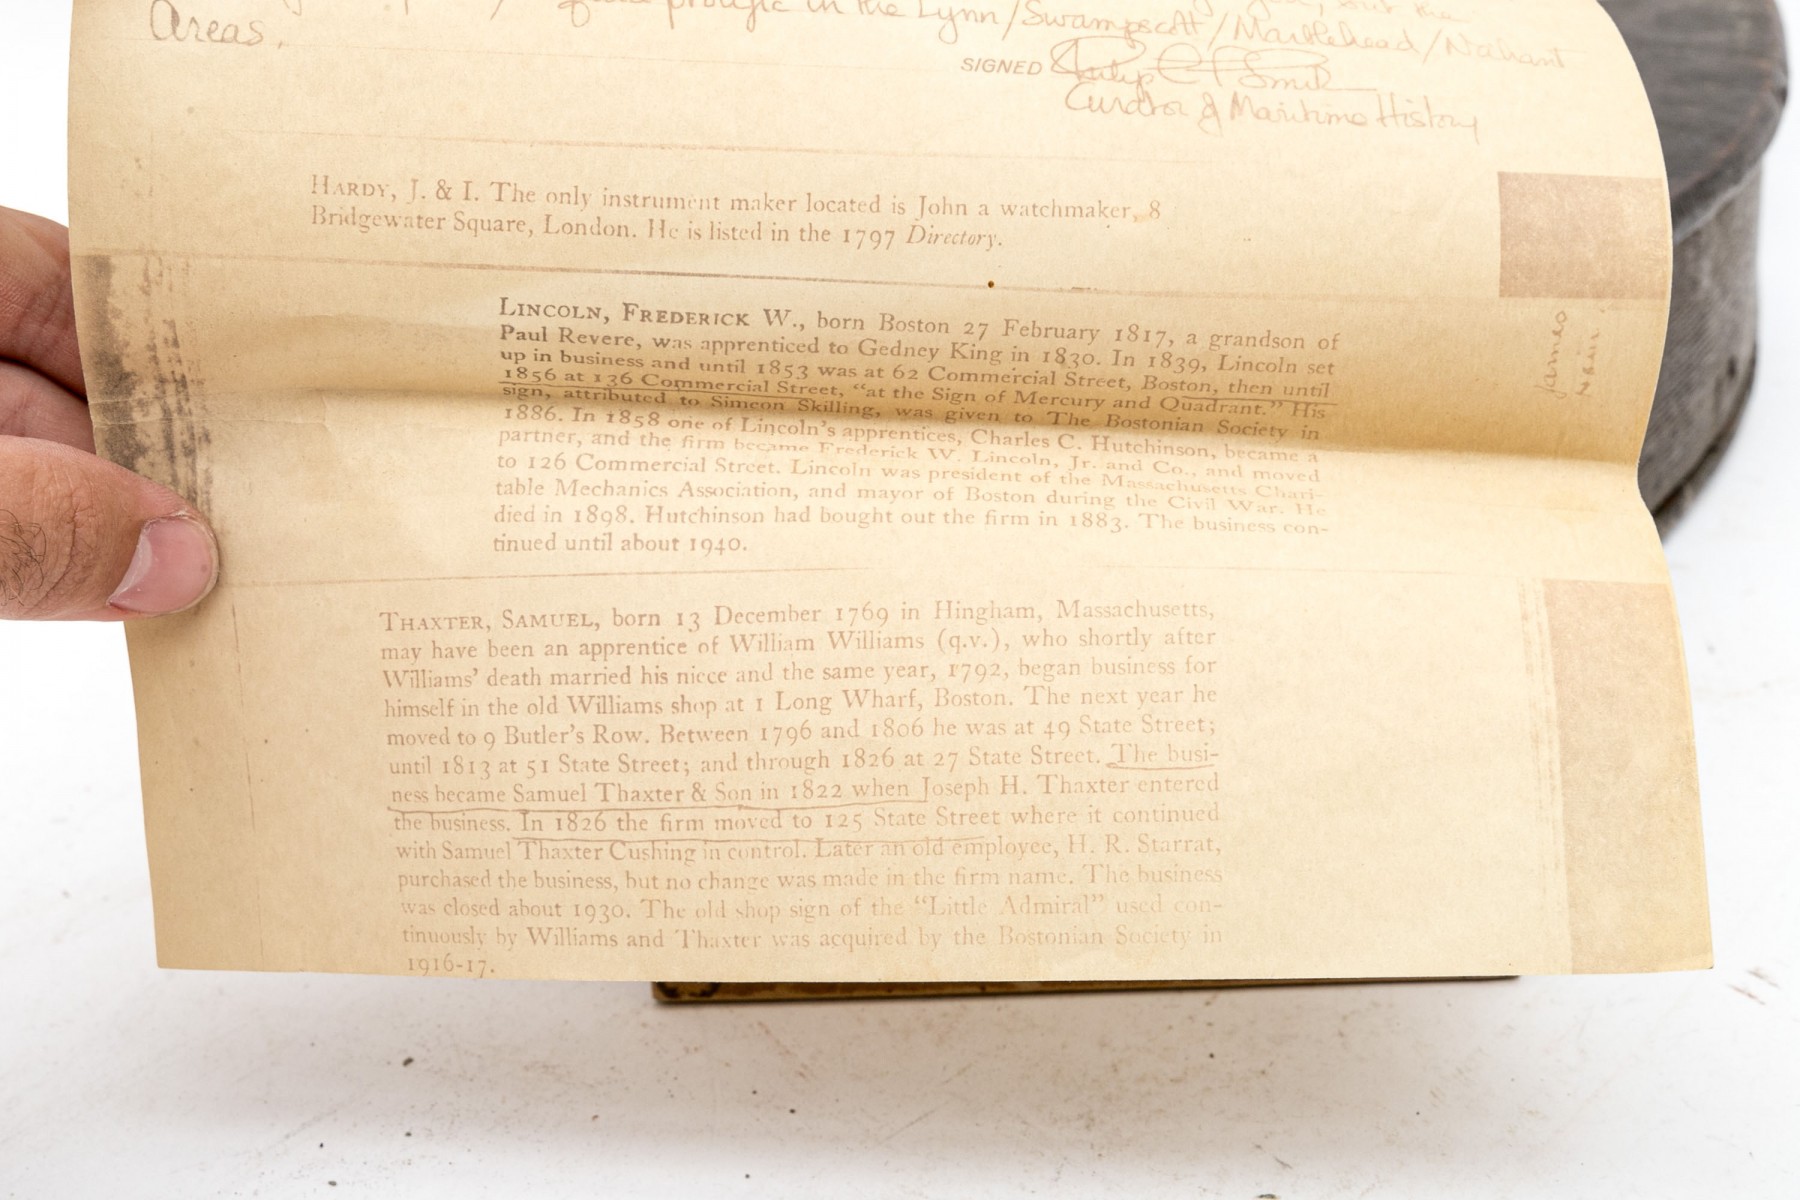 quite prolific in the Lynn/Swampscott/Marblehead/Nahant
Areas.
SIGNED Philip C F Smith
Curator of Maritime History
HARDY, J. & I. The only instrument maker located is John a watchmaker, 8
Bridgewater Square, London. He is listed in the 1797 Directory.
LINCOLN, FREDERICK W., born Boston 27 February 1817, a grandson of
Paul Revere, was apprenticed to Gedney King in 1830. In 1839, Lincoln set
up in business and until 1853 was at 62 Commercial Street, Boston, then until
1856 at 136 Commercial Street, “at the Sign of Mercury and Quadrant.” His
sign, attributed to Simeon Skilling, was given to The Bostonian Society in
1886. In 1858 one of Lincoln's apprentices, Charles C. Hutchinson, became a
partner, and the firm became Frederick W. Lincoln, Jr. and Co., and moved
to 126 Commercial Street. Lincoln was president of the Massachusetts Chari-
table Mechanics Association, and mayor of Boston during the Civil War. He
died in 1898. Hutchinson had bought out the firm in 1883. The business con-
tinued until about 1940.
James
THAXTER, SAMUEL, born 13 December 1769 in Hingham, Massachusetts,
may have been an apprentice of William Williams (q.v.), who shortly after
Williams' death married his niece and the same year, 1792, began business for
himself in the old Williams shop at 1 Long Wharf, Boston. The next year he
moved to 9 Butler's Row. Between 1796 and 1806 he was at 49 State Street;
until 1813 at 51 State Street; and through 1826 at 27 State Street. The busi-
ness became Samuel Thaxter & Son in 1822 when Joseph H. Thaxter entered
the business. In 1826 the firm moved to 125 State Street where it continued
with Samuel Thaxter Cushing in control. Later an old employee, H. R. Starrat,
purchased the business, but no change was made in the firm name. The business
was closed about 1930. The old shop sign of the “Little Admiral” used con-
tinuously by Williams and Thaxter was acquired by the Bostonian Society in
1916-17.